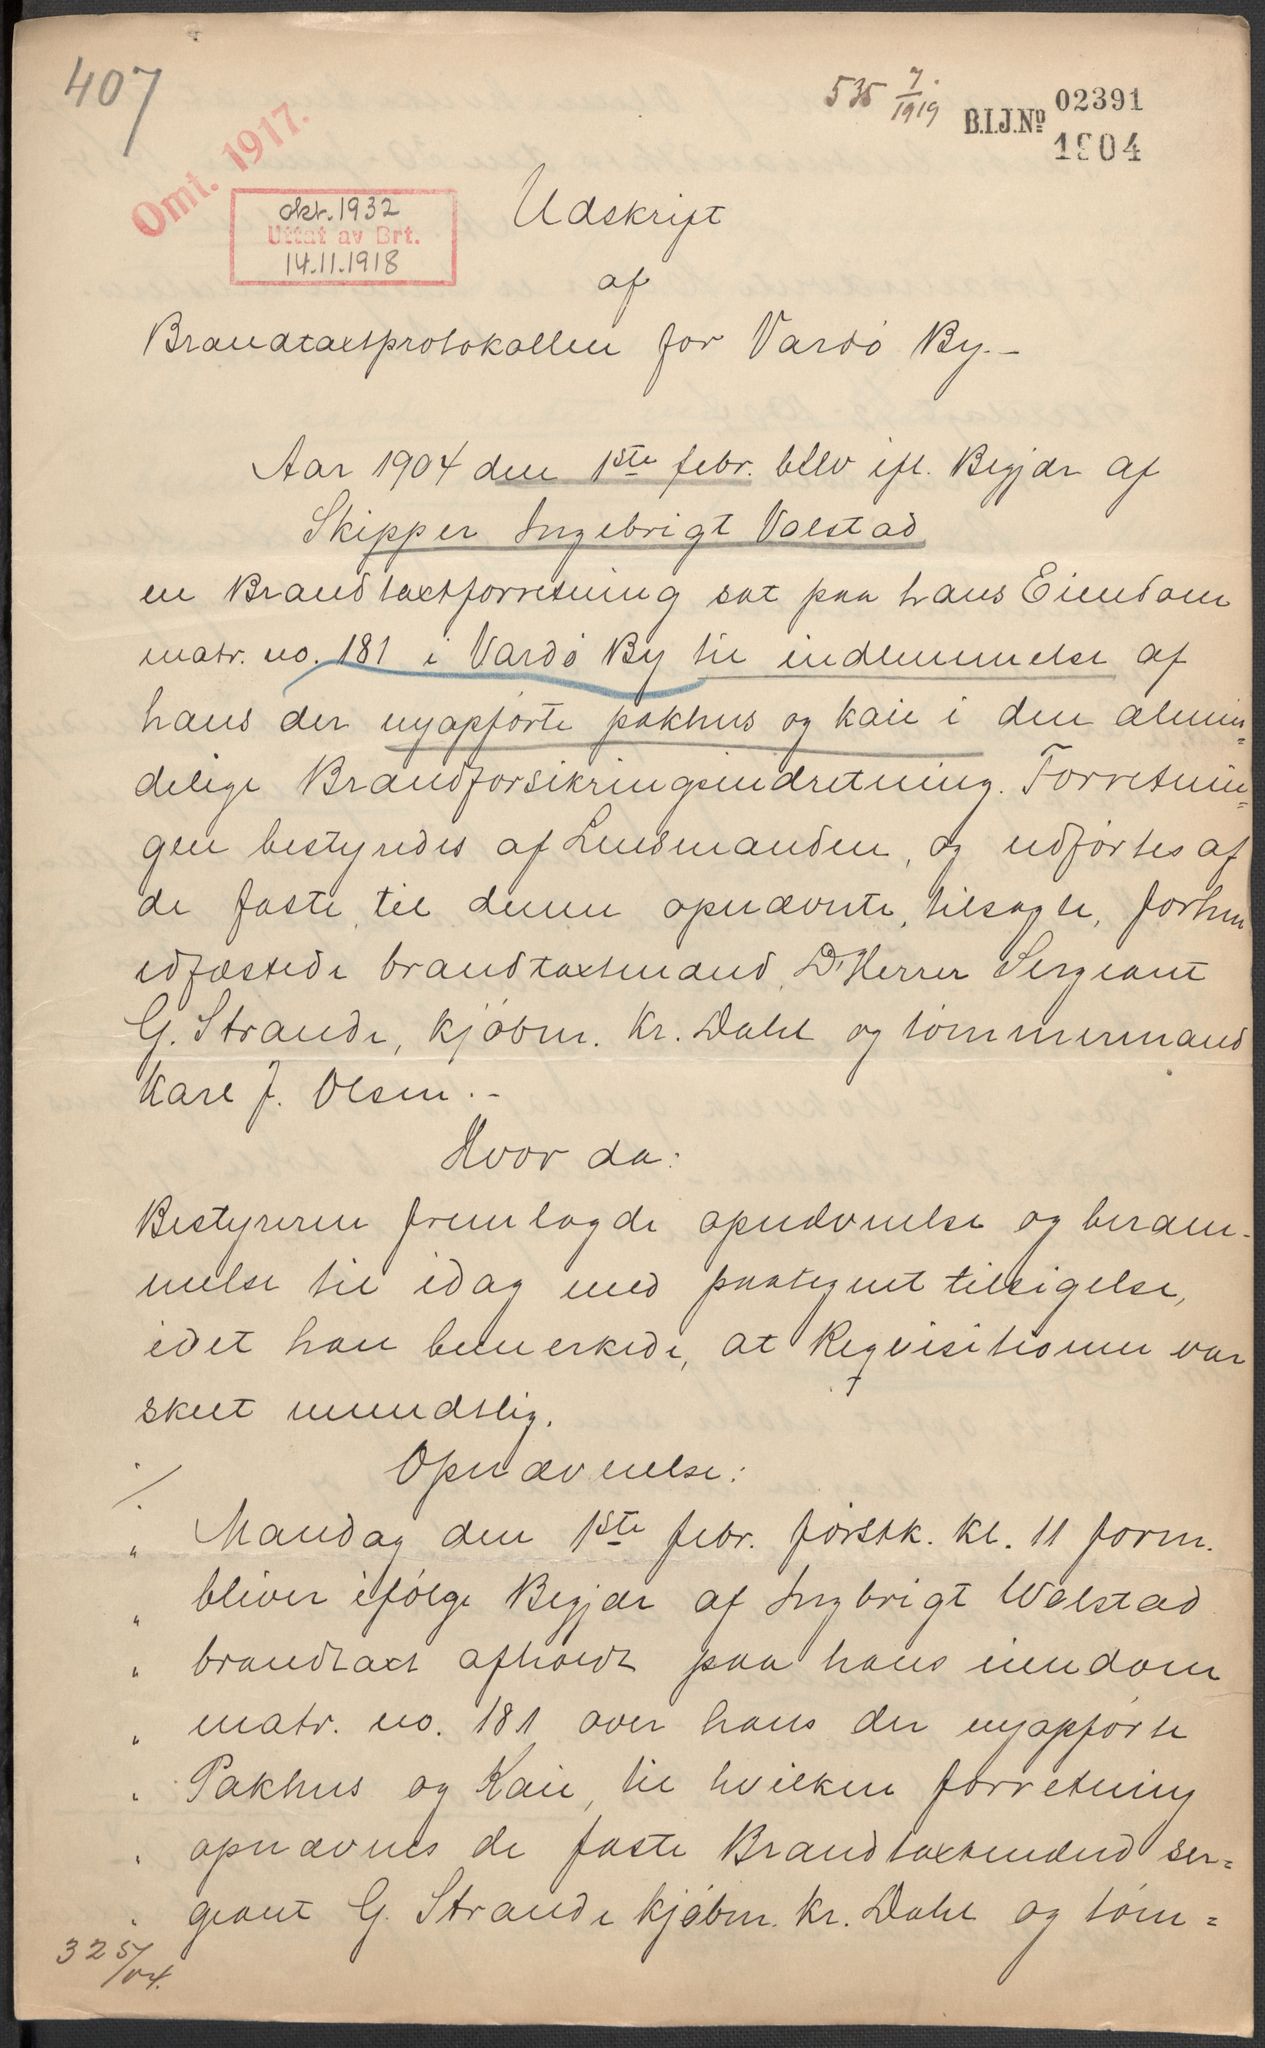 407
535 7/1919
B.I.J.No 02391
1904
Omt. 1917.
okt. 1932
Uttat av Brt.
14.11.1918
Udskrift
af
Brandtaxtprotokollen for Vardø By.-
Aar 1904 den 1ste febr. blev ifl. Begjær af
Skipper Ingebrigt Valstad
en Brandtaxtforretning sat paa hans Eiendom
matr. no. 181 i Vardø By til indlemmelse af
hans der nyopførte pakhus og kaie i den almin=
delige Brandforsikringsindretning. Forretnin=
gen bestyredes af Lensmanden, og udførtes af
de faste, til denne opnævnte, tilsagte, forhen
edfæstede brandtaxtmænd, D'Herrer Sergeant
G. Strande, kjøbm. Kr. Dahl og tømmermand
Karl J. Olsen.-
Hvor da:
Bestyreren fremlagde opnævnelse og beram-
melse til idag med paategnet tilsigelse,
idet han bemerkede, at Reqvisitionen var
skeet mundtlig.
Opnævnelse:
./.
" Mandag den 1ste febr. førstk. kl. 11 form.
" bliver ifølge Begjær af Ingbrigt Walstad
" brandtaxt afholdt paa hans eiendom
" matr. no. 181 over hans der nyopførte
" Pakhus og Kaie, til hvilken forretning
" opnævnes de faste Brandtaxtmænd ser=
" geant G. Strande kjøbm. Kr. Dahl og tøm=
325/04.